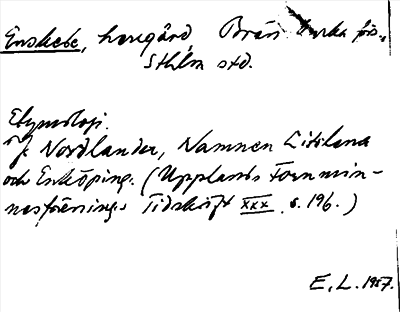 Enskede, herrgård, Brän kyrka fös.,
Sthlm std.
Etymologi.
J. Nordlander, Namnen Litslena
och Enköping. (Upplands Fornmin-
nesförenings Tidskrift XXX, s. 196.)
E. L. 1957.